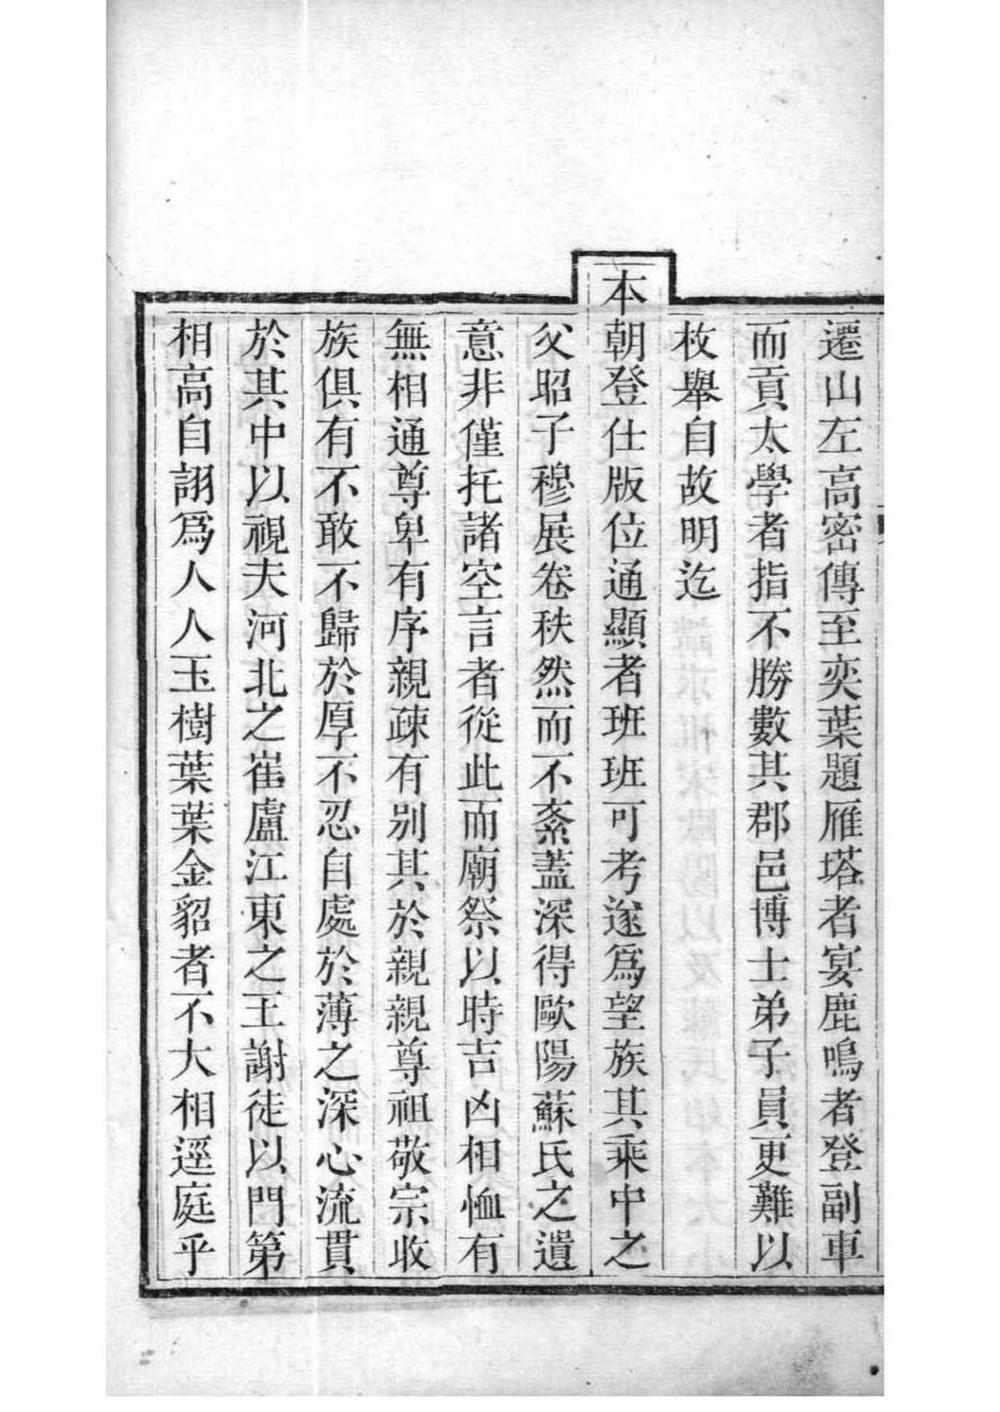 遷山左高密傳至奕葉題雁塔者宴鹿鳴者登副車
而貢太學者指不勝數其郡邑博士弟子員更難以
枚舉自故明迄
本朝登仕版位通顯者班班可考遂爲望族其乘中之
父昭子穆展卷秩然而不紊蓋深得歐陽蘇氏之遺
意非僅托諸空言者從此而廟祭以時吉凶相恤有
無相通尊卑有序親疎有别其於親親尊祖敬宗收
族俱有不敢不歸於厚不忍自處於薄之深心流貫
於其中以視夫河北之崔盧江東之王謝徒以門第
相高自詡爲人人玉樹葉葉金貂者不大相逕庭乎